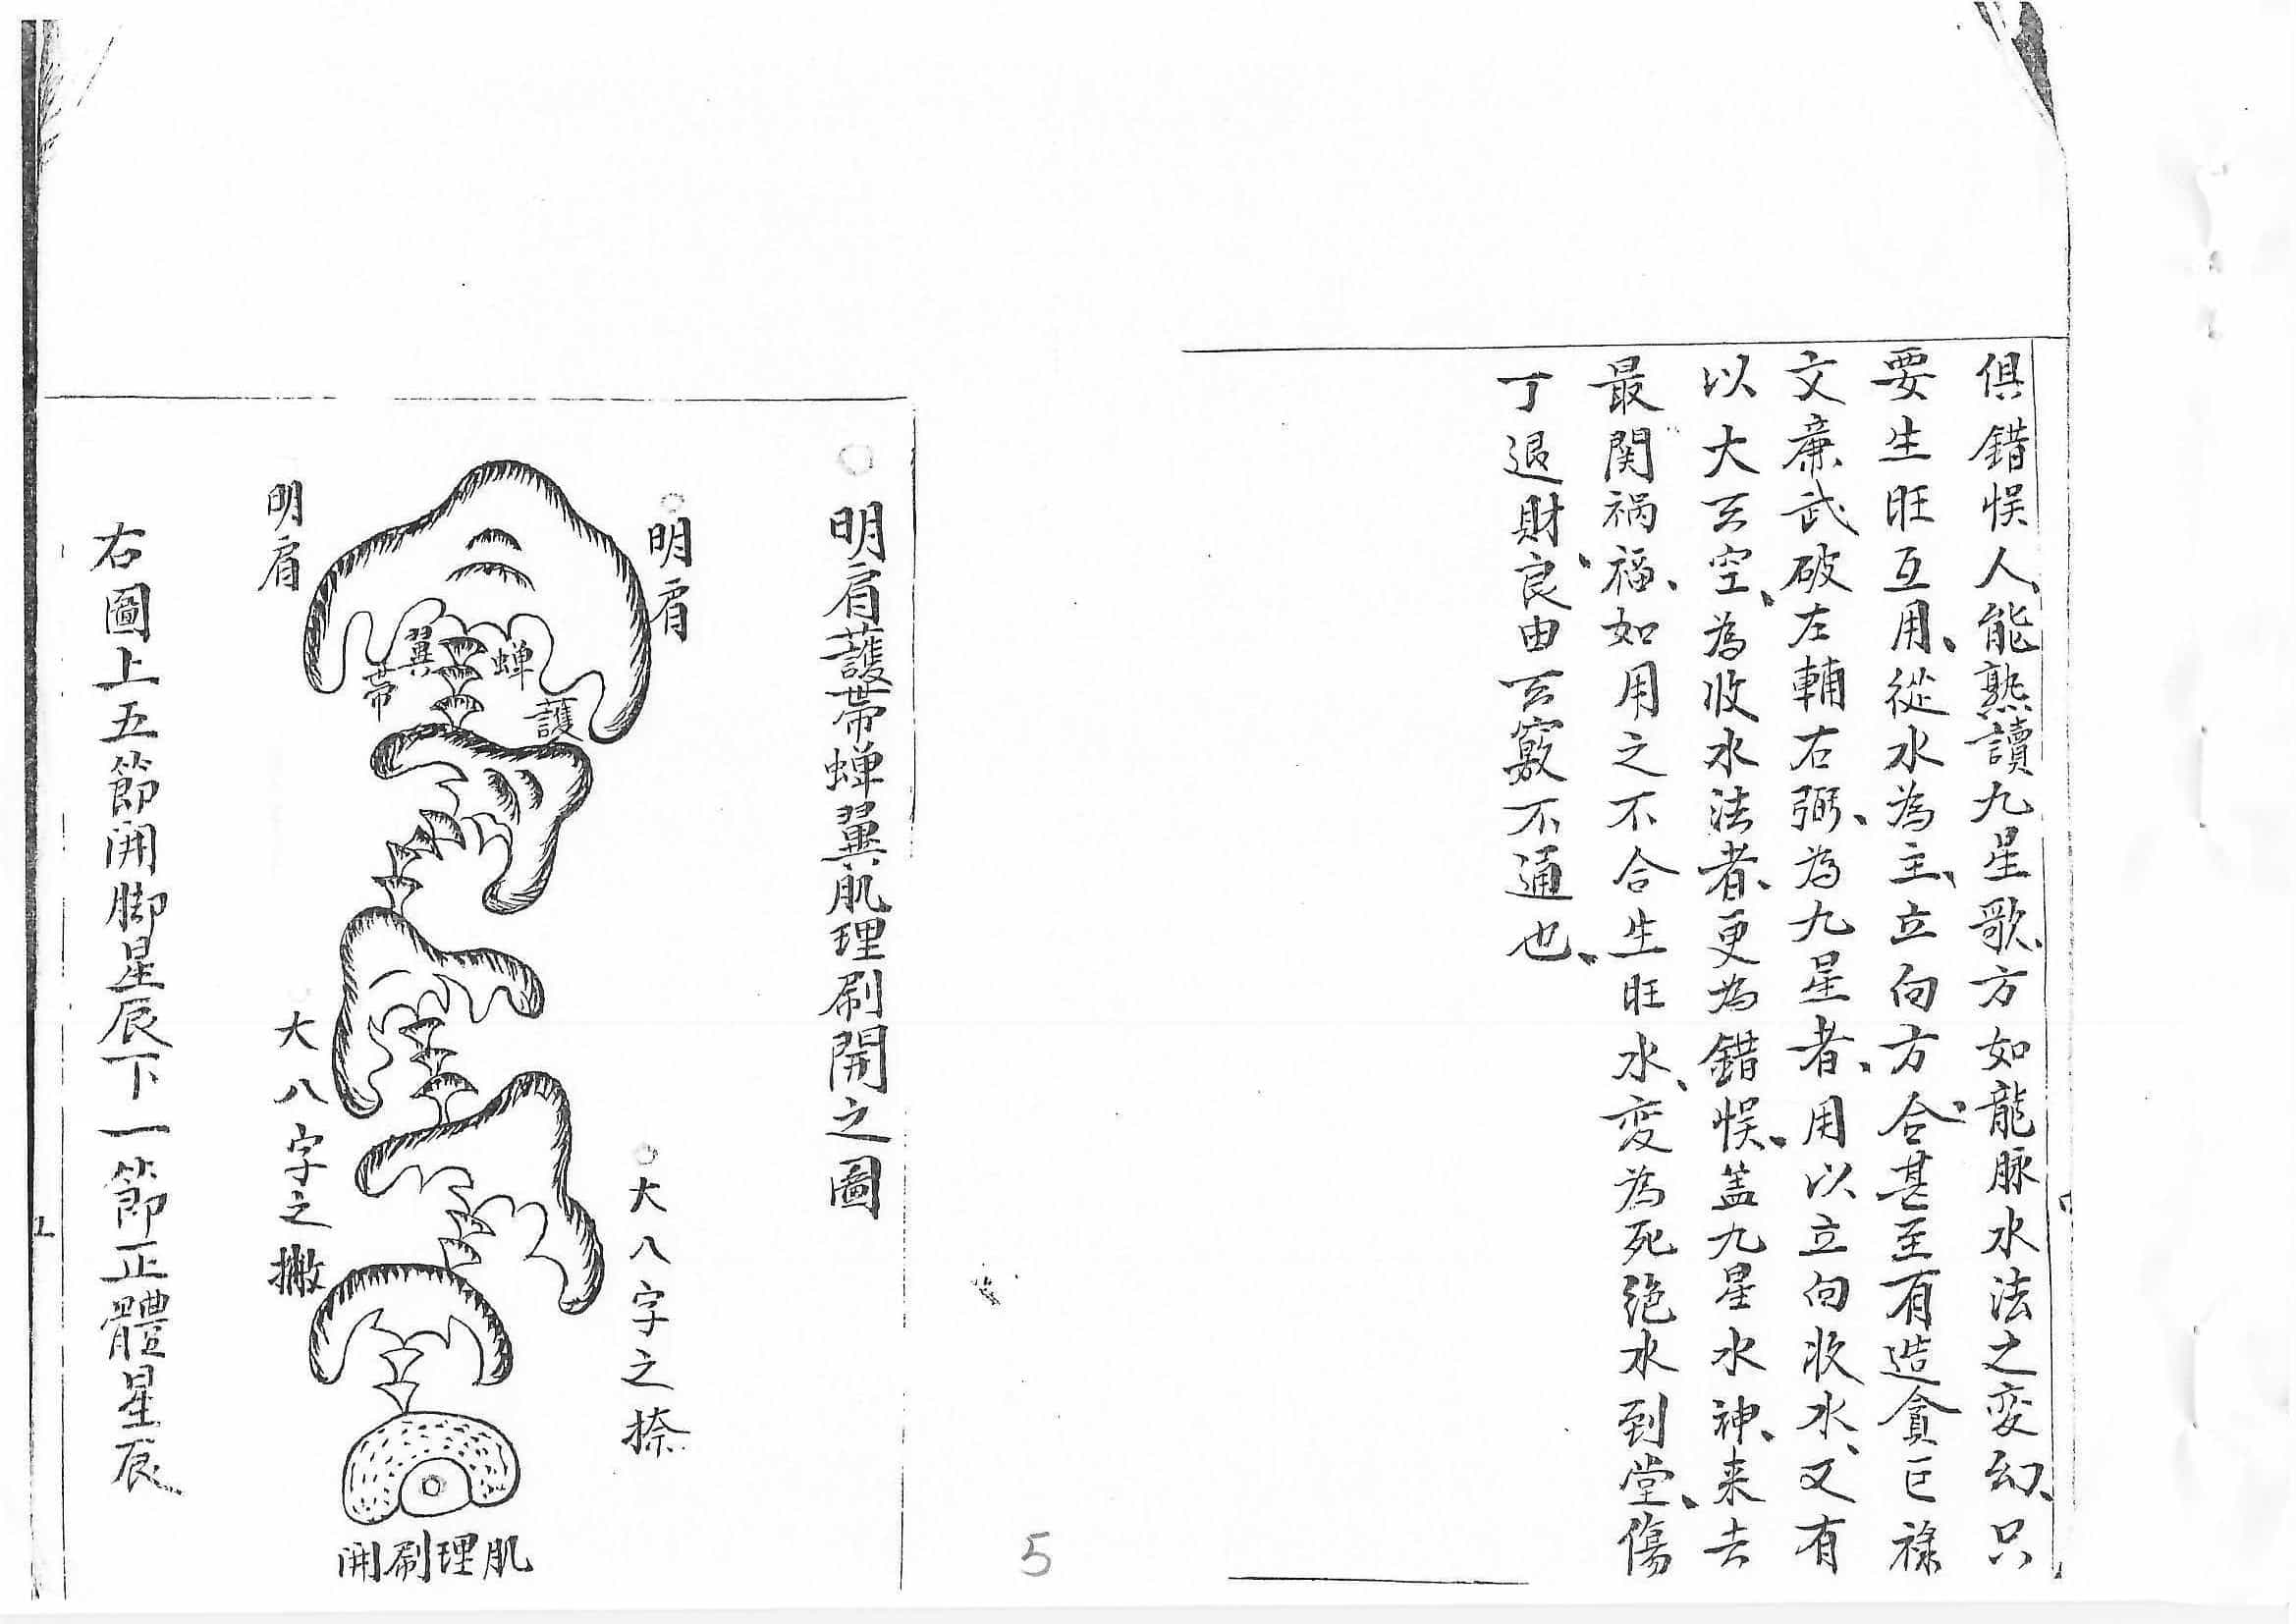 俱錯悮人、能熟讀九星歌、方如龍脉水法之変幻、只
要生旺互用、從水為主、立向方合、甚至有造貪巨祿
文廉武破左輔右弼、為九星者、用以立向收水、又有
以大玄空、為收水法者、更為錯悮、盖九星水神、来去
最関禍福、如用之不合生旺水、変為死絶水到堂、傷
丁退財、良由玄竅不通也、
5
明肩護帶蝉翼肌理刷開之圖
明肩
明肩
蝉翼
護帶
大八字之捺
大八字之撇
肌理刷開
右圖上五節開脚星辰下一節正體星辰